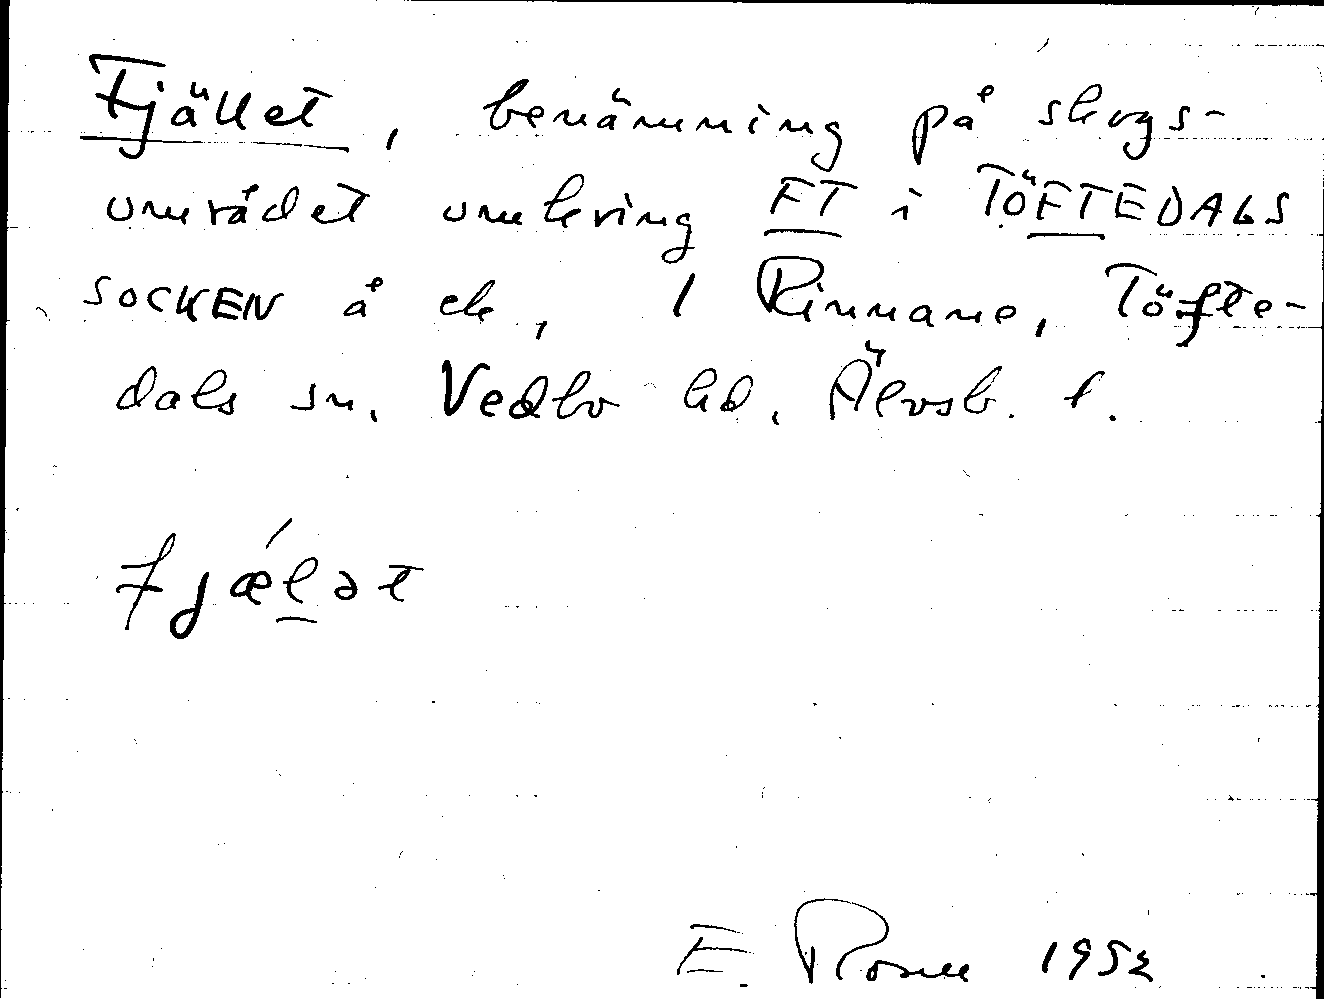 Fjället, benämning på skogs-
området omkring FT i TÖFTEDALS
SOCKEN å ek, 1 Rinnane, Töfte-
dals sn. Vedbo hd. Älvsb. l.
fjǽlət
E. Rosell 1952